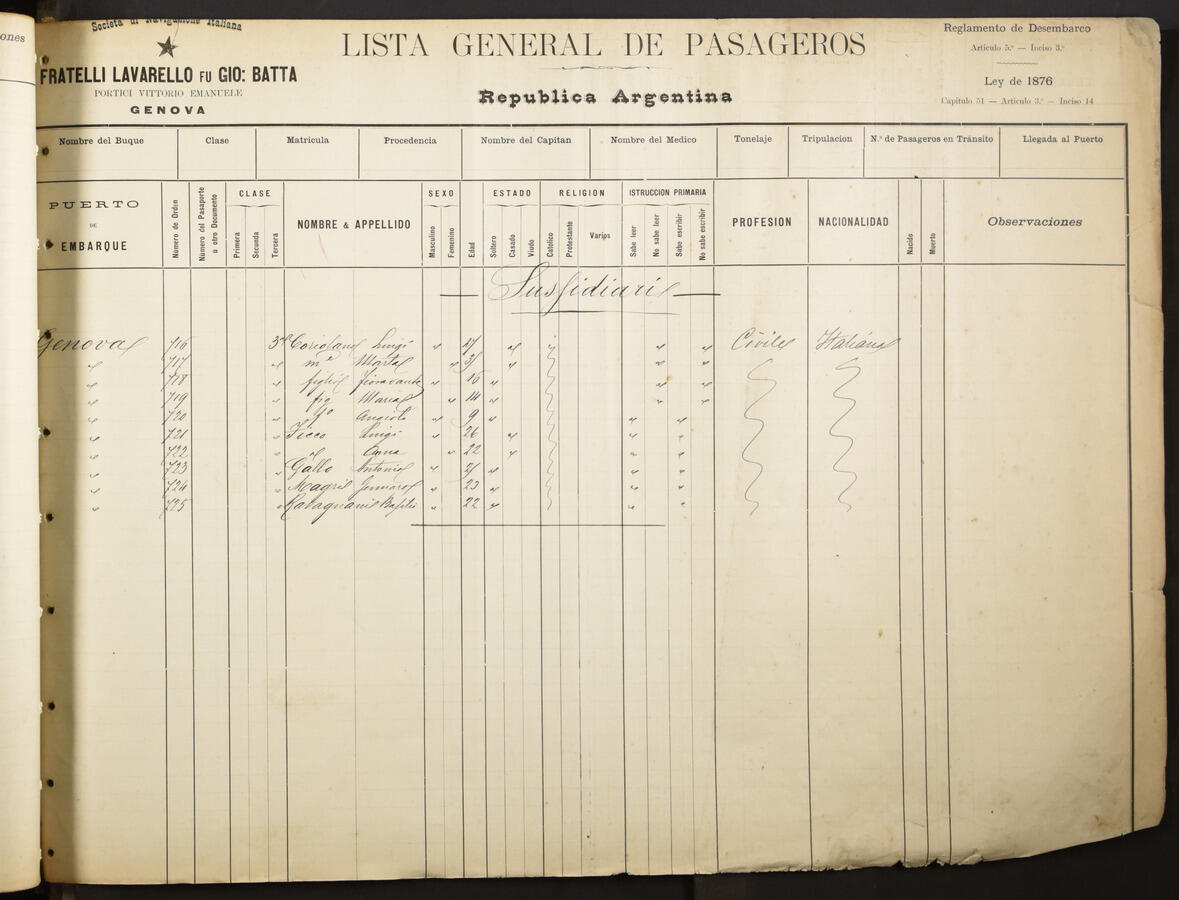 ones
Società di Navigazione Italiana
FRATELLI LAVARELLO FU GIO: BATTA
PORTICI VITTORIO EMANUELE
GENOVA
LISTA GENERAL DE PASAGEROS
Republica Argentina
Reglamento de Desembarco
Articulo 5.º — Inciso 3.º
Ley de 1876
Capitulo 51 — Articulo 3.º — Inciso 14
Nombre del Buque Clase Matricula Procedencia Nombre del Capitan Nombre del Medico Tonelaje Tripulacion N.º de Pasageros en Tránsito Llegada al Puerto
PUERTO DE EMBARQUE
Número de Ordin
Número del Pasaporte u otro Documento
CLASE
Primera Secunda Tercera
NOMBRE & APPELLIDO
SEXO
Masculino Femenino
Edad
ESTADO
Soltero Casado Viudo
RELIGION
Catolico Protestante Varios
ISTRUCCION PRIMARIA
Sabe leer No sabe leer Sabe escribir No sabe escribir
PROFESION
NACIONALIDAD
Nacido Muerto
Observaciones
— Sussidiari —
Genova 716 3ª Luigi " 17 " " " Civile Italiana
" 717 " mª " " " "
" 718 " figlio Fioravante " 16 " " "
" 719 " fig Maria " 14 " " "
" 720 " Angiolo " 9 " " "
" 721 " Ficco Luigi " 26 " " "
" 722 " " Anna " 22 " " "
" 723 " Gallo Antonio " 21 " " "
" 724 " Magril Gennaro " 23 " " "
" 725 " Ravagnani " 22 " " "